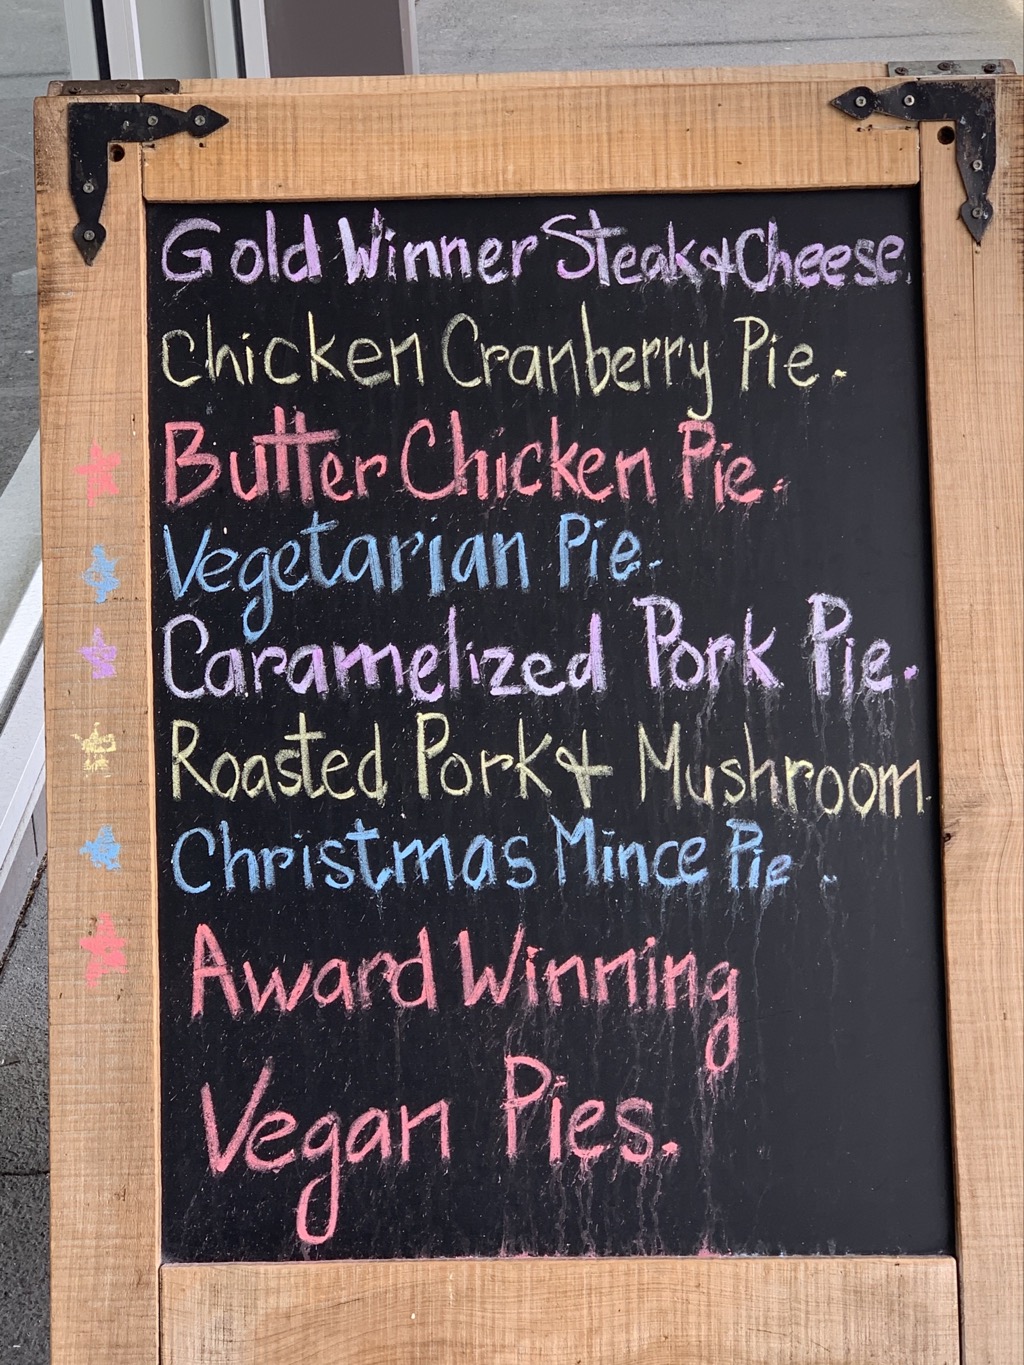 Gold Winner Steak & Cheese.
Chicken Cranberry Pie.
Butter Chicken Pie.
Vegetarian Pie.
Caramelized Pork Pie.
Roasted Pork & Mushroom.
Christmas Mince Pie.
Award Winning
Vegan Pies.